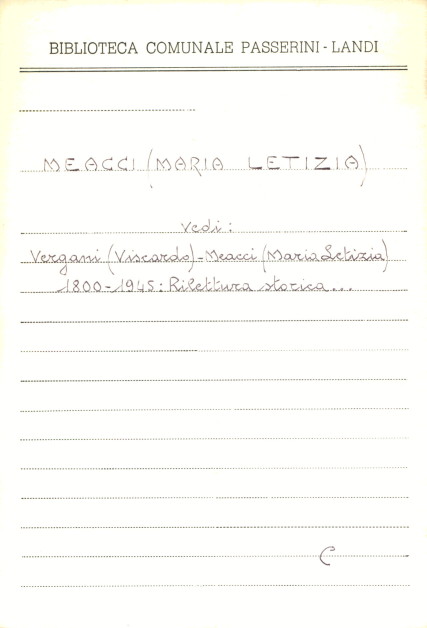 BIBLIOTECA COMUNALE PASSERINI - LANDI
MEACCI (MARIA LETIZIA)
Vedi:
Vergani (Viscardo) - Meacci (Maria Letizia)
1800-1945: Rilettura storica...
C